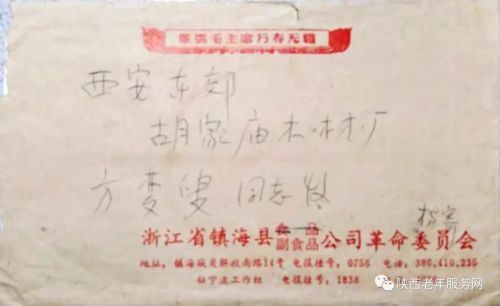 敬祝毛主席万寿无疆
西安东郊
胡家庙木材厂
方变叟同志收
杨寄
浙江省镇海县食品副食品公司革命委员会
地址:镇海城关解放南路14号 电报挂号:0756 电话:386,410,235
驻宁波工作组 电报挂号:1838
陕西老年服务网